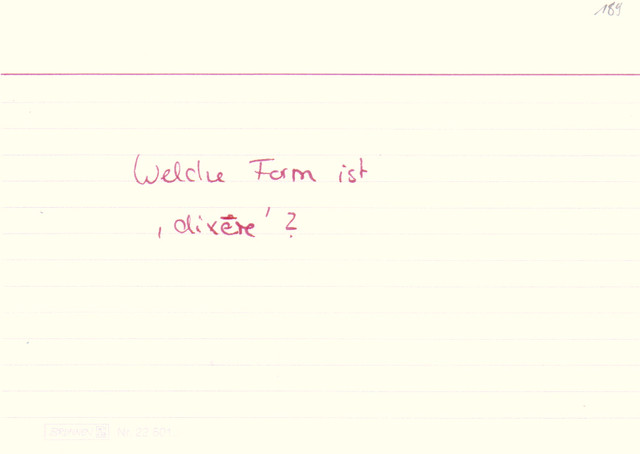 189
Welche Form ist
‚dixēre' ?
BRUNNEN Nr. 22 601